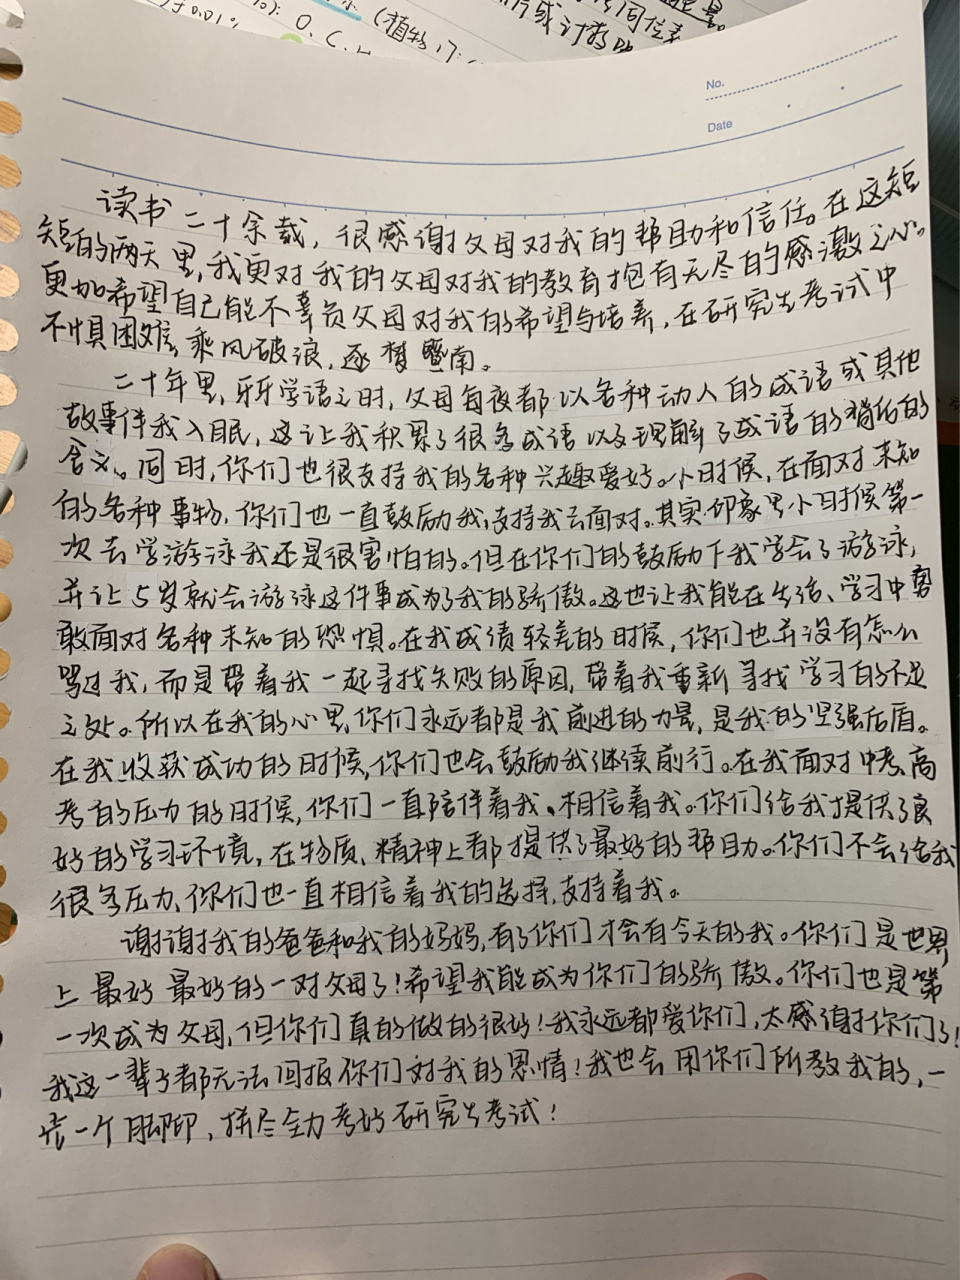 ±0.01%
O.C.H
(植物)
片或
同位素
No.
Date
读书二十余载，很感谢父母对我的帮助和信任。在这短
短的两天里，我更对我的父母对我的教育抱有无尽的感激之心。
更加希望自己能不辜负父母对我的希望与培养，在研究生考试中
不惧困难，乘风破浪，逐梦暨南。
二十年里，牙牙学语之时，父母每夜都以各种动人的成语或其他
故事伴我入眠，这让我积累了很多成语以及理解了成语的背后的
含义。同时，你们也很支持我的各种兴趣爱好。小时候，在面对未知
的各种事物，你们也一直鼓励我，支持我去面对。其实印象里小时候第一
次去学游泳我还是很害怕的。但在你们的鼓励下我学会了游泳，
并让5岁就会游泳这件事成为了我的骄傲。这也让我能在生活、学习中勇
敢面对各种未知的恐惧。在我成绩较差的时候，你们也并没有怎么
骂过我，而是带着我一起寻找失败的原因，带着我重新寻找学习的不足
之处。所以在我的心里，你们永远都是我前进的力量，是我的坚强后盾。
在我收获成功的时候，你们也会鼓励我继续前行。在我面对中考、高
考的压力的时候，你们一直陪伴着我、相信着我。你们给我提供了良
好的学习环境，在物质、精神上都提供了最好的帮助。你们不会给我
很多压力、你们也一直相信着我的选择，支持着我。
谢谢我的爸爸和我的妈妈，有了你们才会有今天的我。你们是世界
上最好最好的一对父母了！希望我能成为你们的骄傲。你们也是第
一次成为父母，但你们真的做的很好！我永远都爱你们，太感谢你们了！
我这一辈子都无法回报你们对我的恩情！我也会用你们所教我的，一
步一个脚印，拼尽全力考好研究生考试！